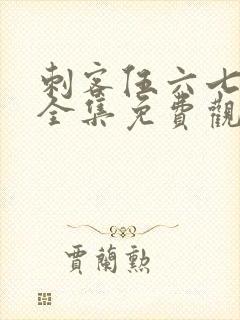 刺客伍六七
全集免費觀
賈蘭勲